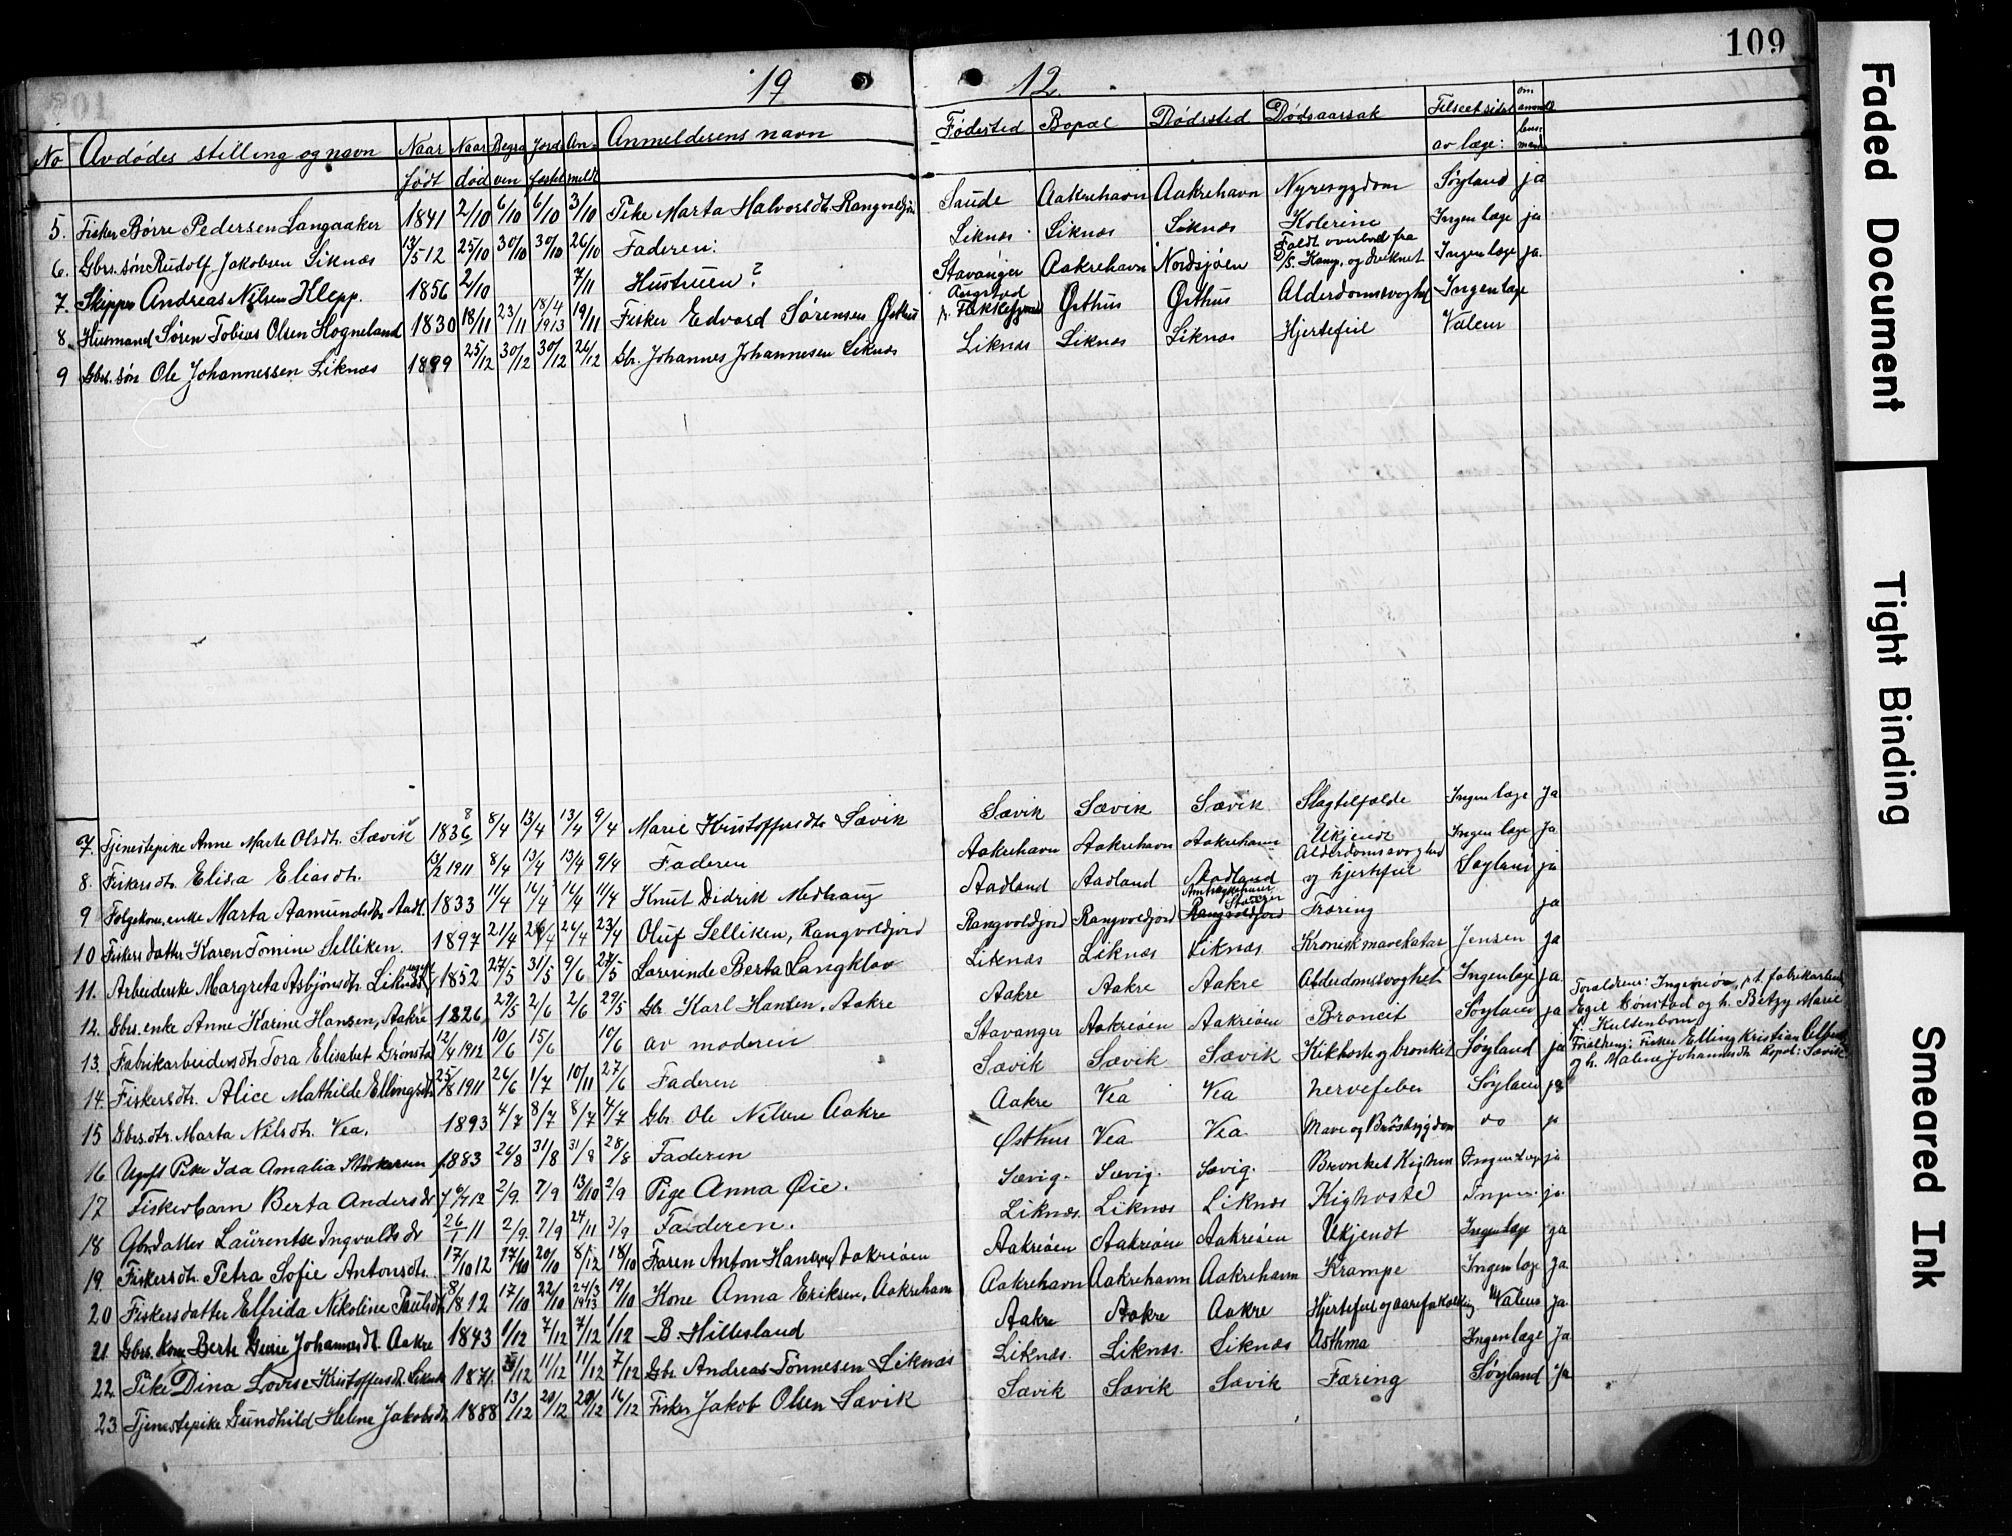 109
19 12.
No Avdødes stilling og navn Naar født Naar død Begra ven Jord festet An- meldt Anmelderens navn Fødested Bopæl Dødssted Dødsaarsak Tilseet sidst av læge: om anmeldt lens- mand
5. Fisker Børre Pedersen Langaaker 1841 2/10 6/10 6/10 3/10 Pike Marta Halvorsdtr. Saude Aakrehavn Aakrehavn Nyresygdom Søyland ja
6. Gbrs. søn Rudolf Jakobsen Liknæs 13/5 12 25/10 30/10 30/10 26/10 Faderen: Liknæs Liknæs Liknæs Kolerine Ingen læge ja
7. Skipper Andreas Nilsen Klepp. 1856 2/10 7/11 Hustruen? Stavanger Aakrehavn Nordsjøen Faldt overbord fra D/S. og druknet Ingen læge ja.
8. Husmand Søren Tobias Olsen Hogneland 1830 18/11 23/11 18/4 1913 19/11 Fisker Edvard Sørensen Østhus p. Flekkefjord Østhus Østhus Alderdomssvaghet Ingen læge
9 Gbrs. søn Ole Johannessen Liknæs 1899 25/12 30/12 30/12 26/12 Gbr. Johannes Johannesen Liknæs Liknæs Liknæs Liknæs Hjertefeil Valeur
7. Tjenestepike Anne Marte Olsdtr. Sævik 1836 8 8/4 13/4 13/4 9/4 Marie Kristoffersdtr Sævik Sævik Sævik Sævik Slagtilfælde Ingen læge Ja
8. Fiskersdtr. Elisa Eliasdtr. 13/2 1911 8/4 13/4 13/4 9/4 Faderen Aakrehavn Aakrehavn Aakrehavn Ukjendt Ingen læge Ja
9 Folgekone, enke Marta Aamundsdtr Aadl. 1833 11/4 16/4 16/4 11/4 Knut Didrik Medhaug Aadland Aadland Aadland Alderdomssvaghed og hjertefeil Søyland ja
10 Fiskers datter Karen Tomine Selliken. 1897 21/4 26/4 26/4 23/4 Oluf Selliken, Rangvoldjord Rangvoldjord Rangvoldjord Amtssykehuset Stavanger Rangvoldjord Tæring ja
11. Arbeiderske Margreta Asbjønsdtr. Liknæs ugift 1852 27/5 31/5 9/6 27/5 Berta Langklov Liknæs Liknæs Liknæs Kronisk mavekatar Jensen ja
12. Gbrs. enke Anne Karine Hansen, Aakre 1826 29/5 2/6 2/6 29/5 Gbr. Karl Hansen. Aakre Aakre Aakre Aakre Alderdomssvaghet Ingen læge ja
13. Fabrikarbeidersdtr Tora Elisabet Grønstad 12/4 1912 10/6 15/6 10/6 av moderen Stavanger Aakreøen Aakreøen Broncit Søyland ja Foræidrene: Ingeniør, p.t. fabrikarbeider Egil Grønstad og h. Betzy Marie f. Kultenborn
14. Fiskersdtr. Alice Mathilde Ellingsdtr 25/8 1911 26/6 1/7 10/11 27/6 Faderen Sævik Sævik Sævik Kikhoste og bronkit Søyland ja Foræidrene: Fisker Elling Kristian og h. Malene Johannesdtr Bopæl: Sævik
15 Gbrs. dtr. Marta Nilsdtr. Vea. 1893 4/7 8/7 8/7 4/7 Gbr. Ole Nilsen Aakre Aakre Vea Vea nervefeber Søyland ja
16. Ugift Pike Ida Amalia Størkersen 1883 26/8 31/8 31/8 28/8 Faderen Østhus Vea Vea Mave og Brøstsygdom do ja
17 Fiskerbarn Berta Andersdtr 6/7 12 2/9. 7/9 13/10 2/9 Pige Anna Øie. Sævig. Sævig. Sævig. Bronket Kighoste Ingen Læge ja
18 Gbrdatter Laurentse Ingvaldsdtr 26/1 11 2/9. 7/9 24/11 3/9 Faderen. Liknæs. Liknæs Liknæs Kighoste Ingen. ja.
19. Fiskersdtr. Petra Sofie Antonsdtr. 17/10 12 17/10 20/10 8/12 18/10 Faren Anton Hansen, Aakreøen Aakreøen Aakreøen Aakreøen Ukjendt Ingen læge ja
20 Fiskersdatter Elfrida Nikoline Paulsdtr 8/8 12 17/10 22/10 24/3 1913 19/10 Kone Anna Eriksen, Aakrehavn Aakrehavn Aakrehavn Aakrehavn Krampe Ingen læge Ja.
21. Gbrs. kone Berte Johannesdtr. Aakre 1843 1/12 7/12 7/12 1/12 B. Hillesland Aakre Aakre Aakre Hjertefeil og aareforkalkning Valeur Ja
22. Pike Dina Lovise Kristoffersdtr. Liknæs 1871. 5/12 11/12 11/12 7/12 Gbr Andreas Tønnesen Liknæs Liknæs. Liknæs. Liknæs Asthma Ingen læge Ja
23. Tjenestepike Gundhild Helene Jakobsdtr 1888 13/12 20/12 20/12 16/12 Fisker Jakob Olsen Sævik Sævik Sævik Sævik Tæring Søyland Ja
Faded Document
Tight Binding
Smeared Ink